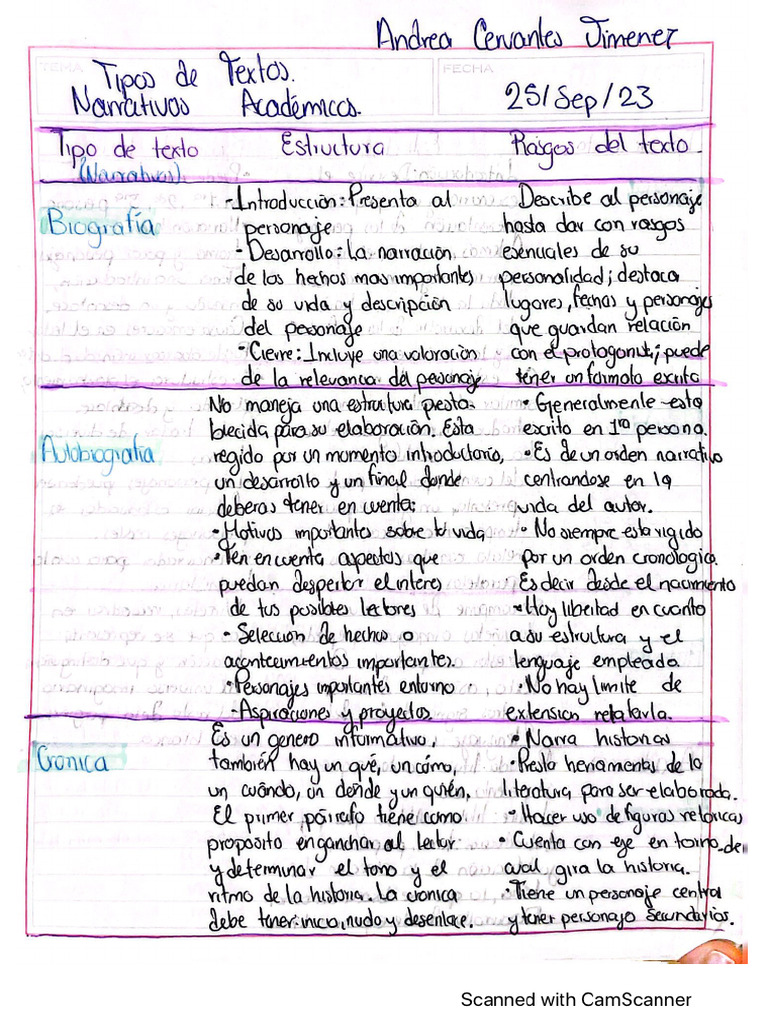 Andrea Cervantes Jimenez
TEMA
Tipos de Textos.
Narrativos Académicos.
FECHA
25/Sep/23
Tipo de texto
(Narrativos)
Estructura
Rasgos del texto
Biografía
-Introducción: Presenta al
personaje
- Desarrollo: la narración
de los hechos mas importantes
de su vida y descripción
del personaje
- Cierre: Incluye una valoración
de la relevancia del personaje
Describe al personaje
hasta dar con rasgos
esenciales de su
personalidad; destaca
lugares, fechas y personajes
que guardan relación
con el protagonist; puede
tener un formato escrito
Autobiografía
No maneja una estructura presta-
blecida para su elaboración. Esta
regido por un momento introductorio,
un desarrollo y un final donde
deberas tener en cuenta:
• Motivos importantes sobre tu vida
• Ten en cuenta aspectos que
puedan despertar el interes
de tus posibles lectores
- Seleccion de hechos o
acontecimientos importantes.
• Personajes importantes entorno
- Aspiraciones y proyectos.
• Generalmente esta
escrito en 1ra persona.
• Es de un orden narrativo
centrandose en la
vida del autor.
• No siempre esta rigido
por un orden cronologico.
Es decir desde el nacimiento
• Hay libertad en cuanto
a su estructura y el
lenguaje empleada
• No hay limite de
extension relatarla.
Cronica
Es un genero informativo,
también hay un qué, un cómo,
un cuándo, un donde y un quién.
El primer párrafo tiene como
proposito enganchar al lector
y determinar el tono y el
ritmo de la historia. La cronica
debe tener: inicio, nudo y desenlace.
• Narra historias
• Presta herramientas de la
literatura para ser elaborada.
• Hacer uso de figuras retoricas
• Cuenta con eje en torno de
cual gira la historia.
• Tiene un personaje central
y tener personajo secundarios.
Scanned with CamScanner